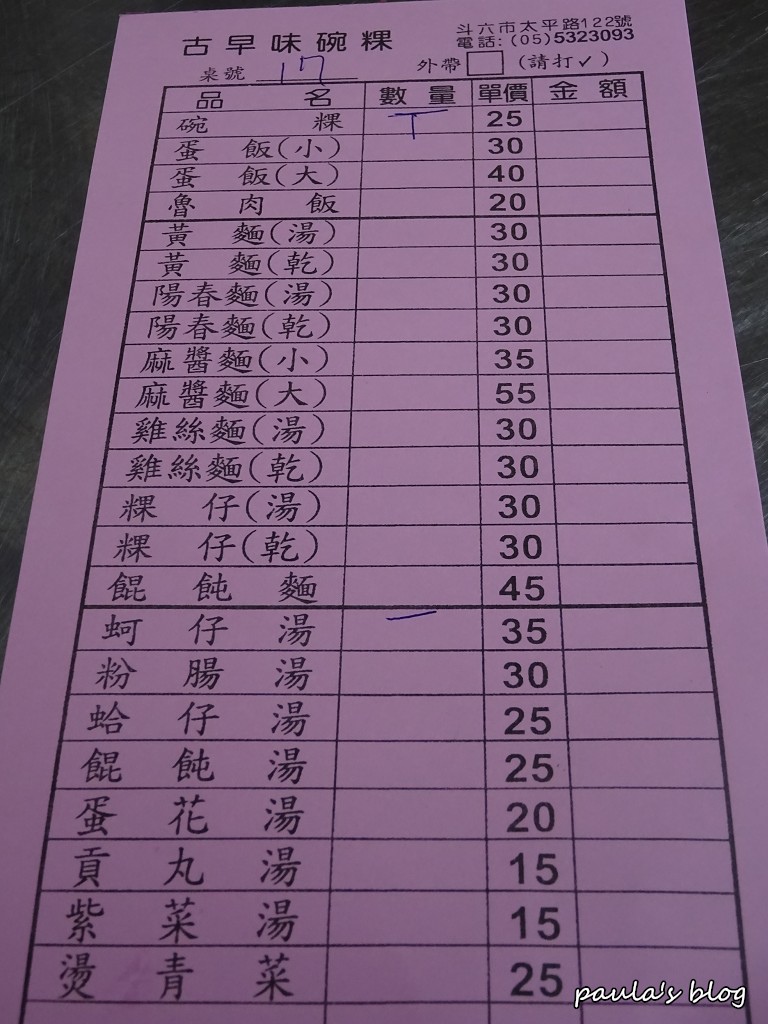 古早味碗粿
斗六市太平路122號
電話:(05)5323093
桌號 17 外帶 (請打✓)
品名 數量 單價 金額
碗粿 T 25
蛋飯(小) 30
蛋飯(大) 40
魯肉飯 20
黃麵(湯) 30
黃麵(乾) 30
陽春麵(湯) 30
陽春麵(乾) 30
麻醬麵(小) 35
麻醬麵(大) 55
雞絲麵(湯) 30
雞絲麵(乾) 30
粿仔(湯) 30
粿仔(乾) 30
餛飩麵 45
蚵仔湯 一 35
粉腸湯 30
蛤仔湯 25
餛飩湯 25
蛋花湯 20
貢丸湯 15
紫菜湯 15
燙青菜 25
paula's blog